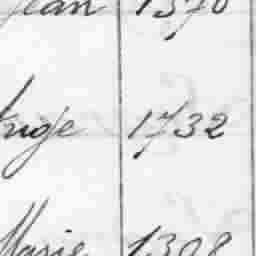 Jean 1370
Ange 1732
Marie 1308